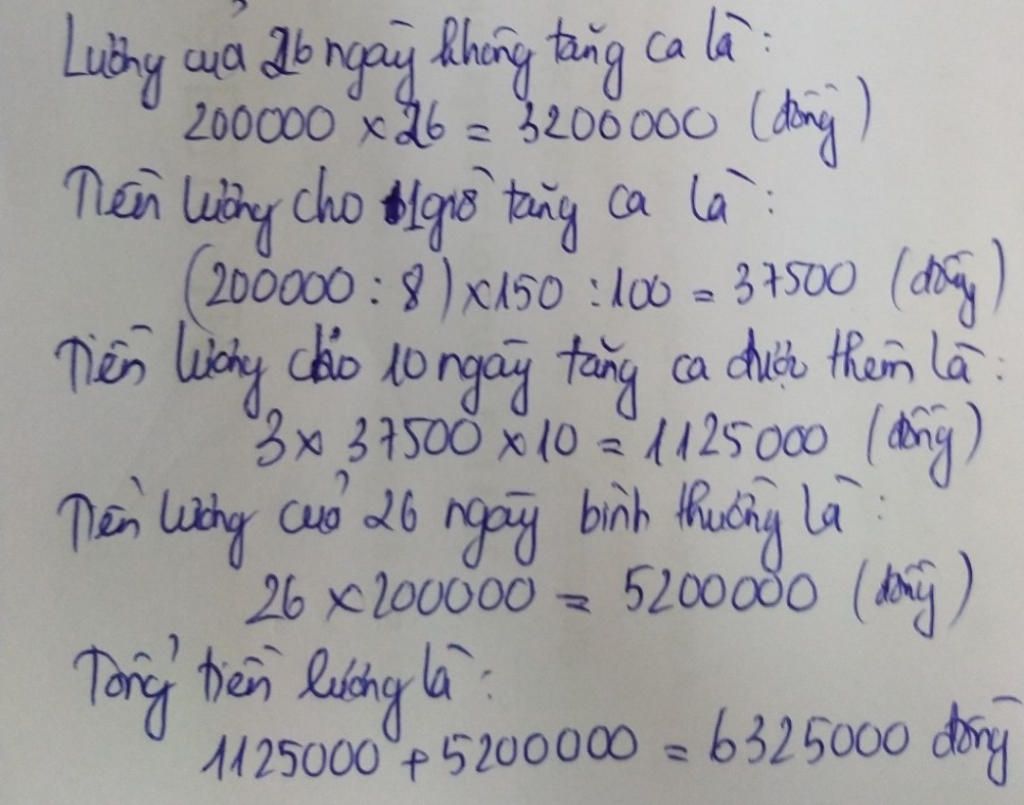 Lương của 26 ngày không tăng ca là:
200000 x 26 = 3200000 (đồng)
Tiền lương cho 1 giờ tăng ca là:
(200000 : 8) x 150 : 100 = 37500 (đồng)
Tiền lương cho 10 ngày tăng ca được thêm là:
3 x 37500 x 10 = 1125000 (đồng)
Tiền lương của 26 ngày bình thường là:
26 x 200000 = 5200000 (đồng)
Tổng tiền lương là:
1125000 + 5200000 = 6325000 đồng